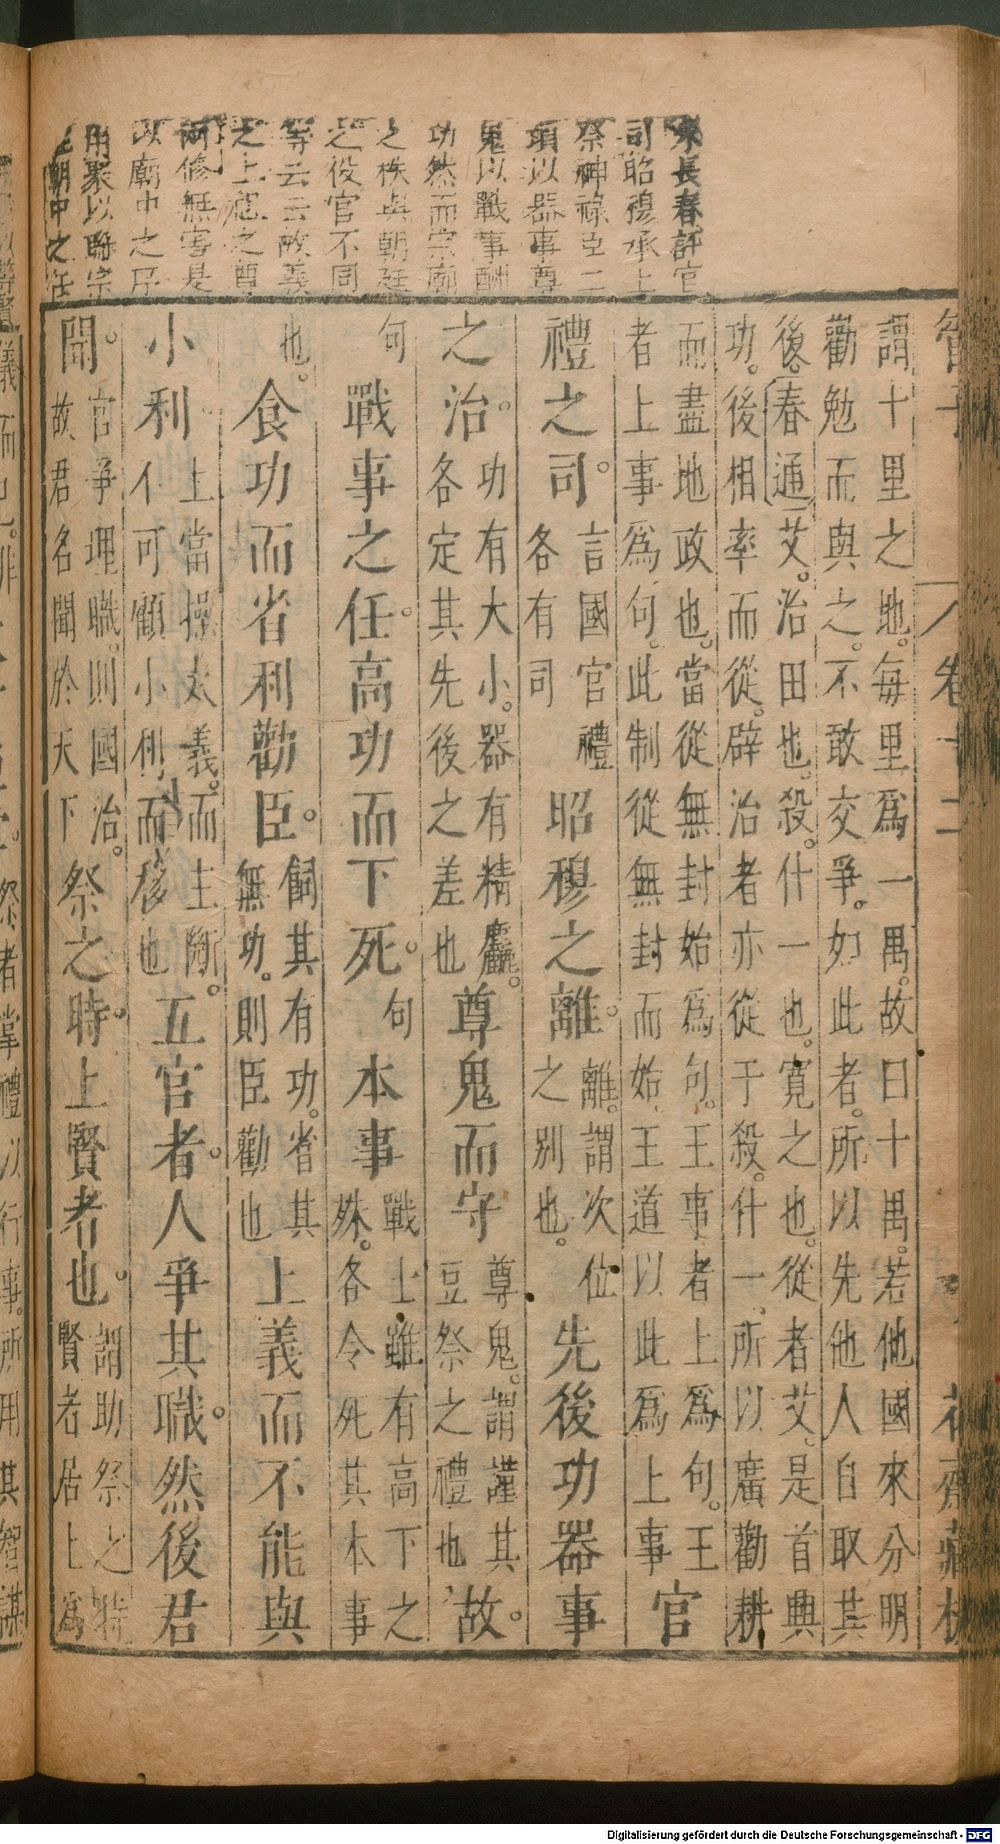 朱長春評官
司昭穆承上
祭神祿臣二
項以器事尊
鬼以戰事酬
功然而宗廟
之秩與朝廷
之役官不同
等云云故義
之上寵之尊
何修無害是
以廟中之序
用聚以聯宗
朝中之任
管子 卷十二 花齋藏板
謂十里之地。每里爲一禺。故曰十禺。若他國來分明
勸勉而與之。不敢交爭。如此者。所以先他人自取其
後。春通艾。治田也。殺。什一也。寬之也。從者艾。是首興
功。後相率而從。辟治者亦從于殺。什一。所以廣勸耕
而盡地政也。當從無封始爲句。王事者上爲句。王
者上事爲句。此制從無封而始。王道以此爲上事官
禮之司。言國官禮各有司昭穆之離。離。謂次位之別也。先後功器事
之治。功有大小。器有精麤。各定其先後之差也尊鬼而守尊鬼。謂謹其豆祭之禮也故。
句戰事之任。高功而下死。句本事戰士雖有高下之殊。各令死其本事
也。食功而省利勸臣。飼其有功。省其無功。則臣勸也上義而不能與
小利。上當操大義。而主斷。不可顧小利而移也五官者。人爭其職。然後君
聞。官爭理職。則國治。故君名聞於天下祭之時。上賢者也。謂助祭之時賢者居上爲
祭者掌禮以行事。所用其智謀
Digitalisierung gefördert durch die Deutsche Forschungsgemeinschaft - DFG